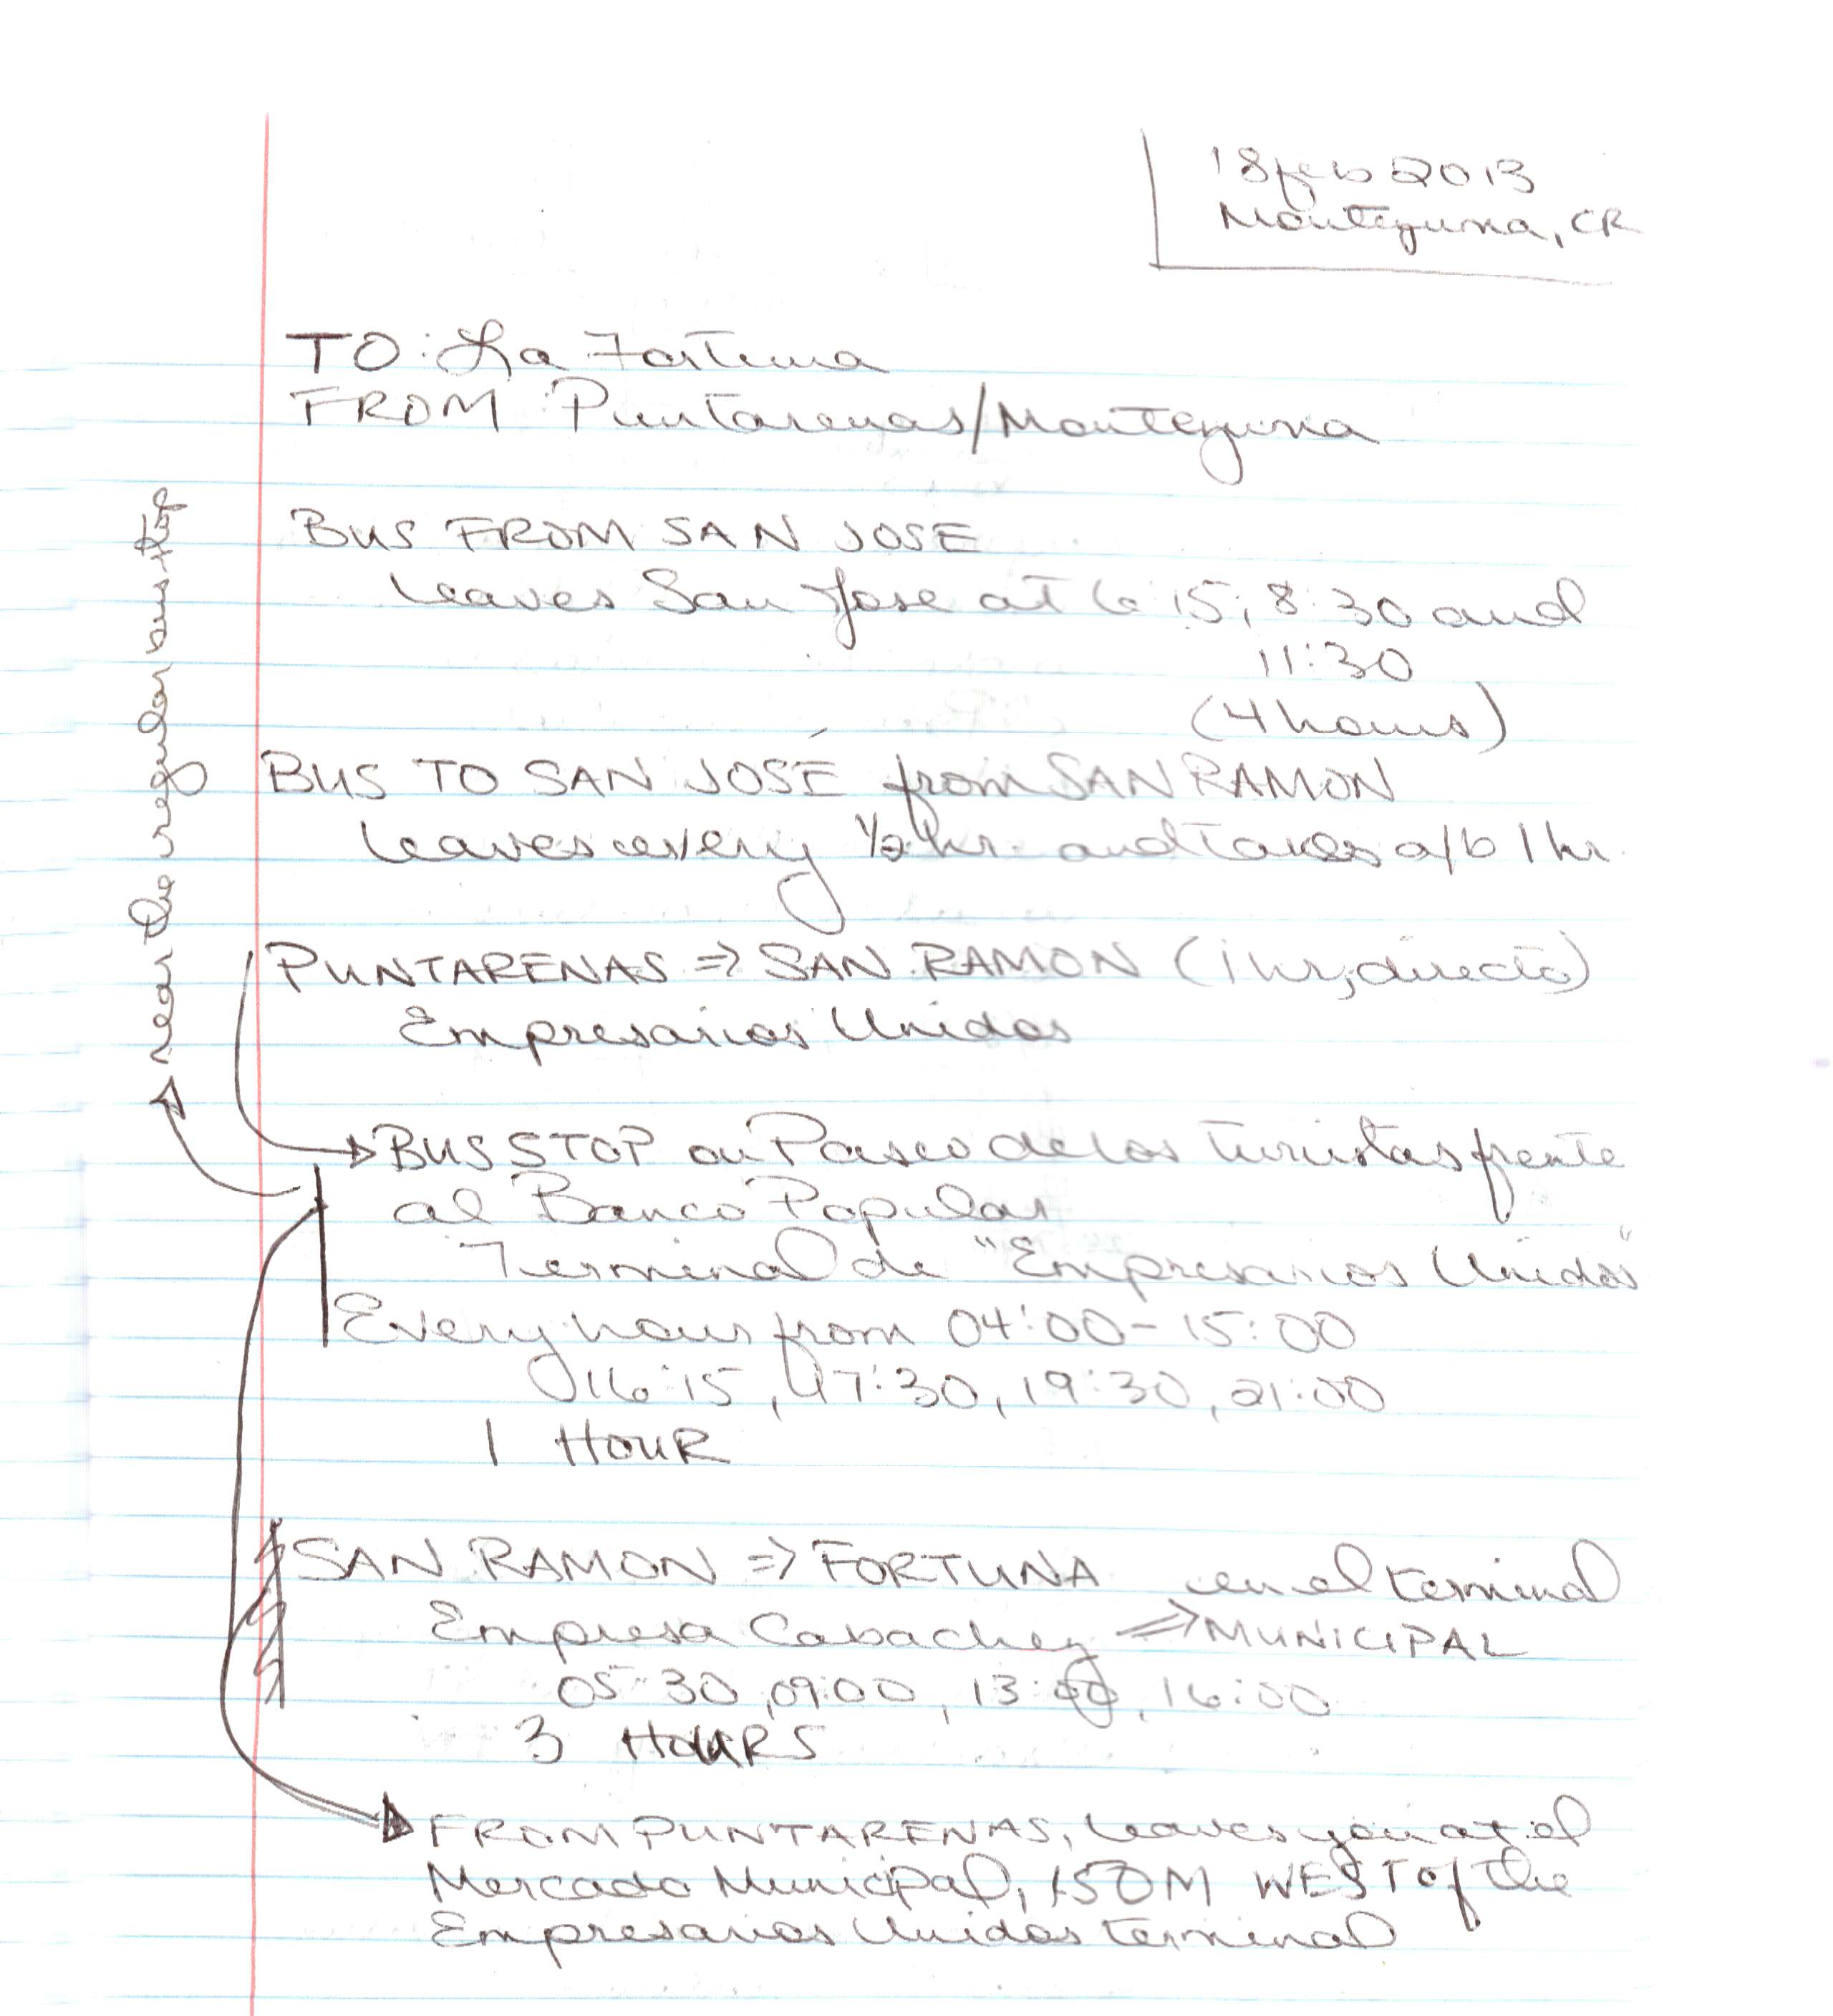 18 feb 2013
Montezuma, CR
TO: La Fortuna
FROM Puntarenas/Montezuma
BUS FROM SAN JOSE
leaves San Jose at 6:15, 8:30 and
11:30
(4 hours)
BUS TO SAN JOSÉ from SAN RAMON
leaves every 1/2 hr. and takes a/b 1 hr.
PUNTARENAS => SAN RAMON (1 hr, directo)
Empresarios Unidos
BUS STOP on Paseo de los Turistas frente
al Banco Popular
Terminal de "Empresarios Unidos"
Every hour from 04:00 - 15:00
16:15, 17:30, 19:30, 21:00
1 HOUR
near the regular bus stop
SAN RAMON => FORTUNA en el terminal
Empresa => MUNICIPAL
05:30, 09:00, 13:00, 16:00
3 HOURS
FROM PUNTARENAS, leaves you at el
Mercado Municipal, 150M WEST of the
Empresarios Unidos terminal